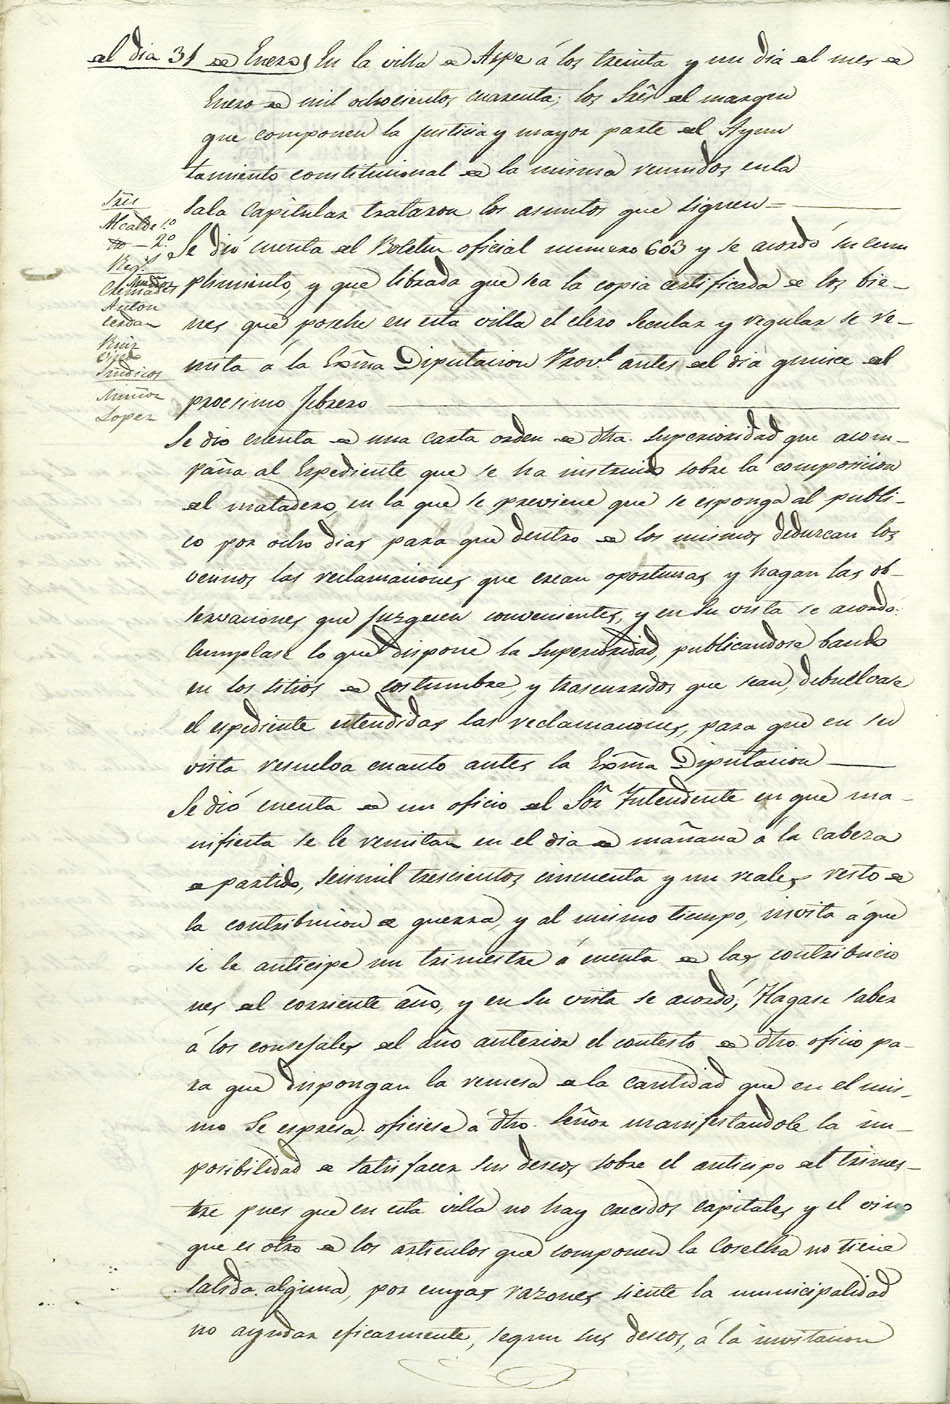 del dia 31 de Enero, En la villa de Aspe á los treinta y un dia del mes de
Enero de mil ochocientos cuarenta; los Sres del margen
que componen la justicia y mayor parte del Ayun
tamiento constitucional de la misma reunidos en la
Sala Capitular trataron los asuntos que siguen=
Sres
Alcalde 1.º
Yo - 2.º
Reg.s
Cremades
Anton
Cerdan
Ruiz
Síndicos
Muñoz
Lopez
Se dió cuenta del Boletin oficial numero 603 y se acordó su cum
plimiento, y que librada que sea la copia certificada de los bie-
nes que posehe en esta villa el clero Secular y regular se re-
mita á la Exma Diputacion Prov.l antes del dia quince del
procsimo febrero
Se dió cuenta de una carta orden de dha. Superioridad que acom-
paña al Espediente que se ha instruido sobre la composicion
del matadero, en la que se previene que se esponga al publi-
co por ocho dias para que dentro de los mismos deduzcan los
vecinos las reclamaciones, que crean oportunas, y hagan las ob-
servaciones que juzguen convenientes, y en su vista se acordó:
Cumplase lo que dispone la Superioridad, publicandose bando
en los sitios de costumbre, y trascurridos que sean, debuelvase
el espediente estendidas las reclamaciones, para que en su
vista resuelva cuanto antes la Exma Diputacion
Se dió cuenta de un oficio del Sor Yntendente en que ma-
nifiesta se le remitan en el dia de mañana á la cabeza
de partido, seismil trescientos cincuenta y un reales resto de
la contribucion de guerra, y al mismo tiempo, invita á que
se le anticipe un trimestre á cuenta de las contribucio
nes del corriente año, y en su vista se acordó; Hagase saber
á los consejales del año anterior el contesto de dho. oficio pa-
ra que dispongan la remesa de la cantidad que en el mis-
mo se espresa. oficiese á dho. Señor manifestandole la im-
posibilidad de satisfacer sus deseos sobre el anticipo del trimes-
tre pues que en esta villa no hay crecidos capitales, y el vino
que es otro de los articulos que componen la Cosecha no tiene
salida alguna, por cuyas razones siente la municipalidad
no ayudar eficazmente, segun sus deseos, á la invitacion